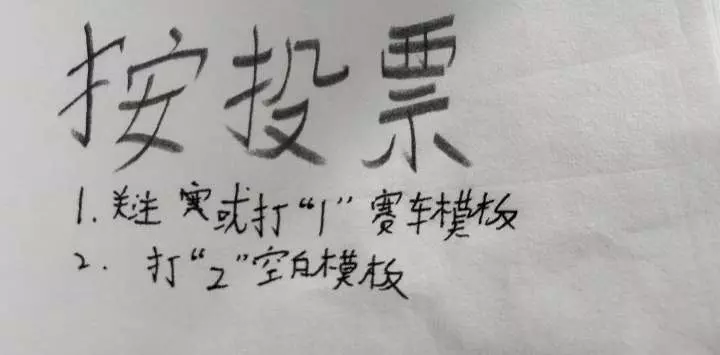 按投票
1. 关注 或打“1”赛车模板
2. 打“2”空白模板